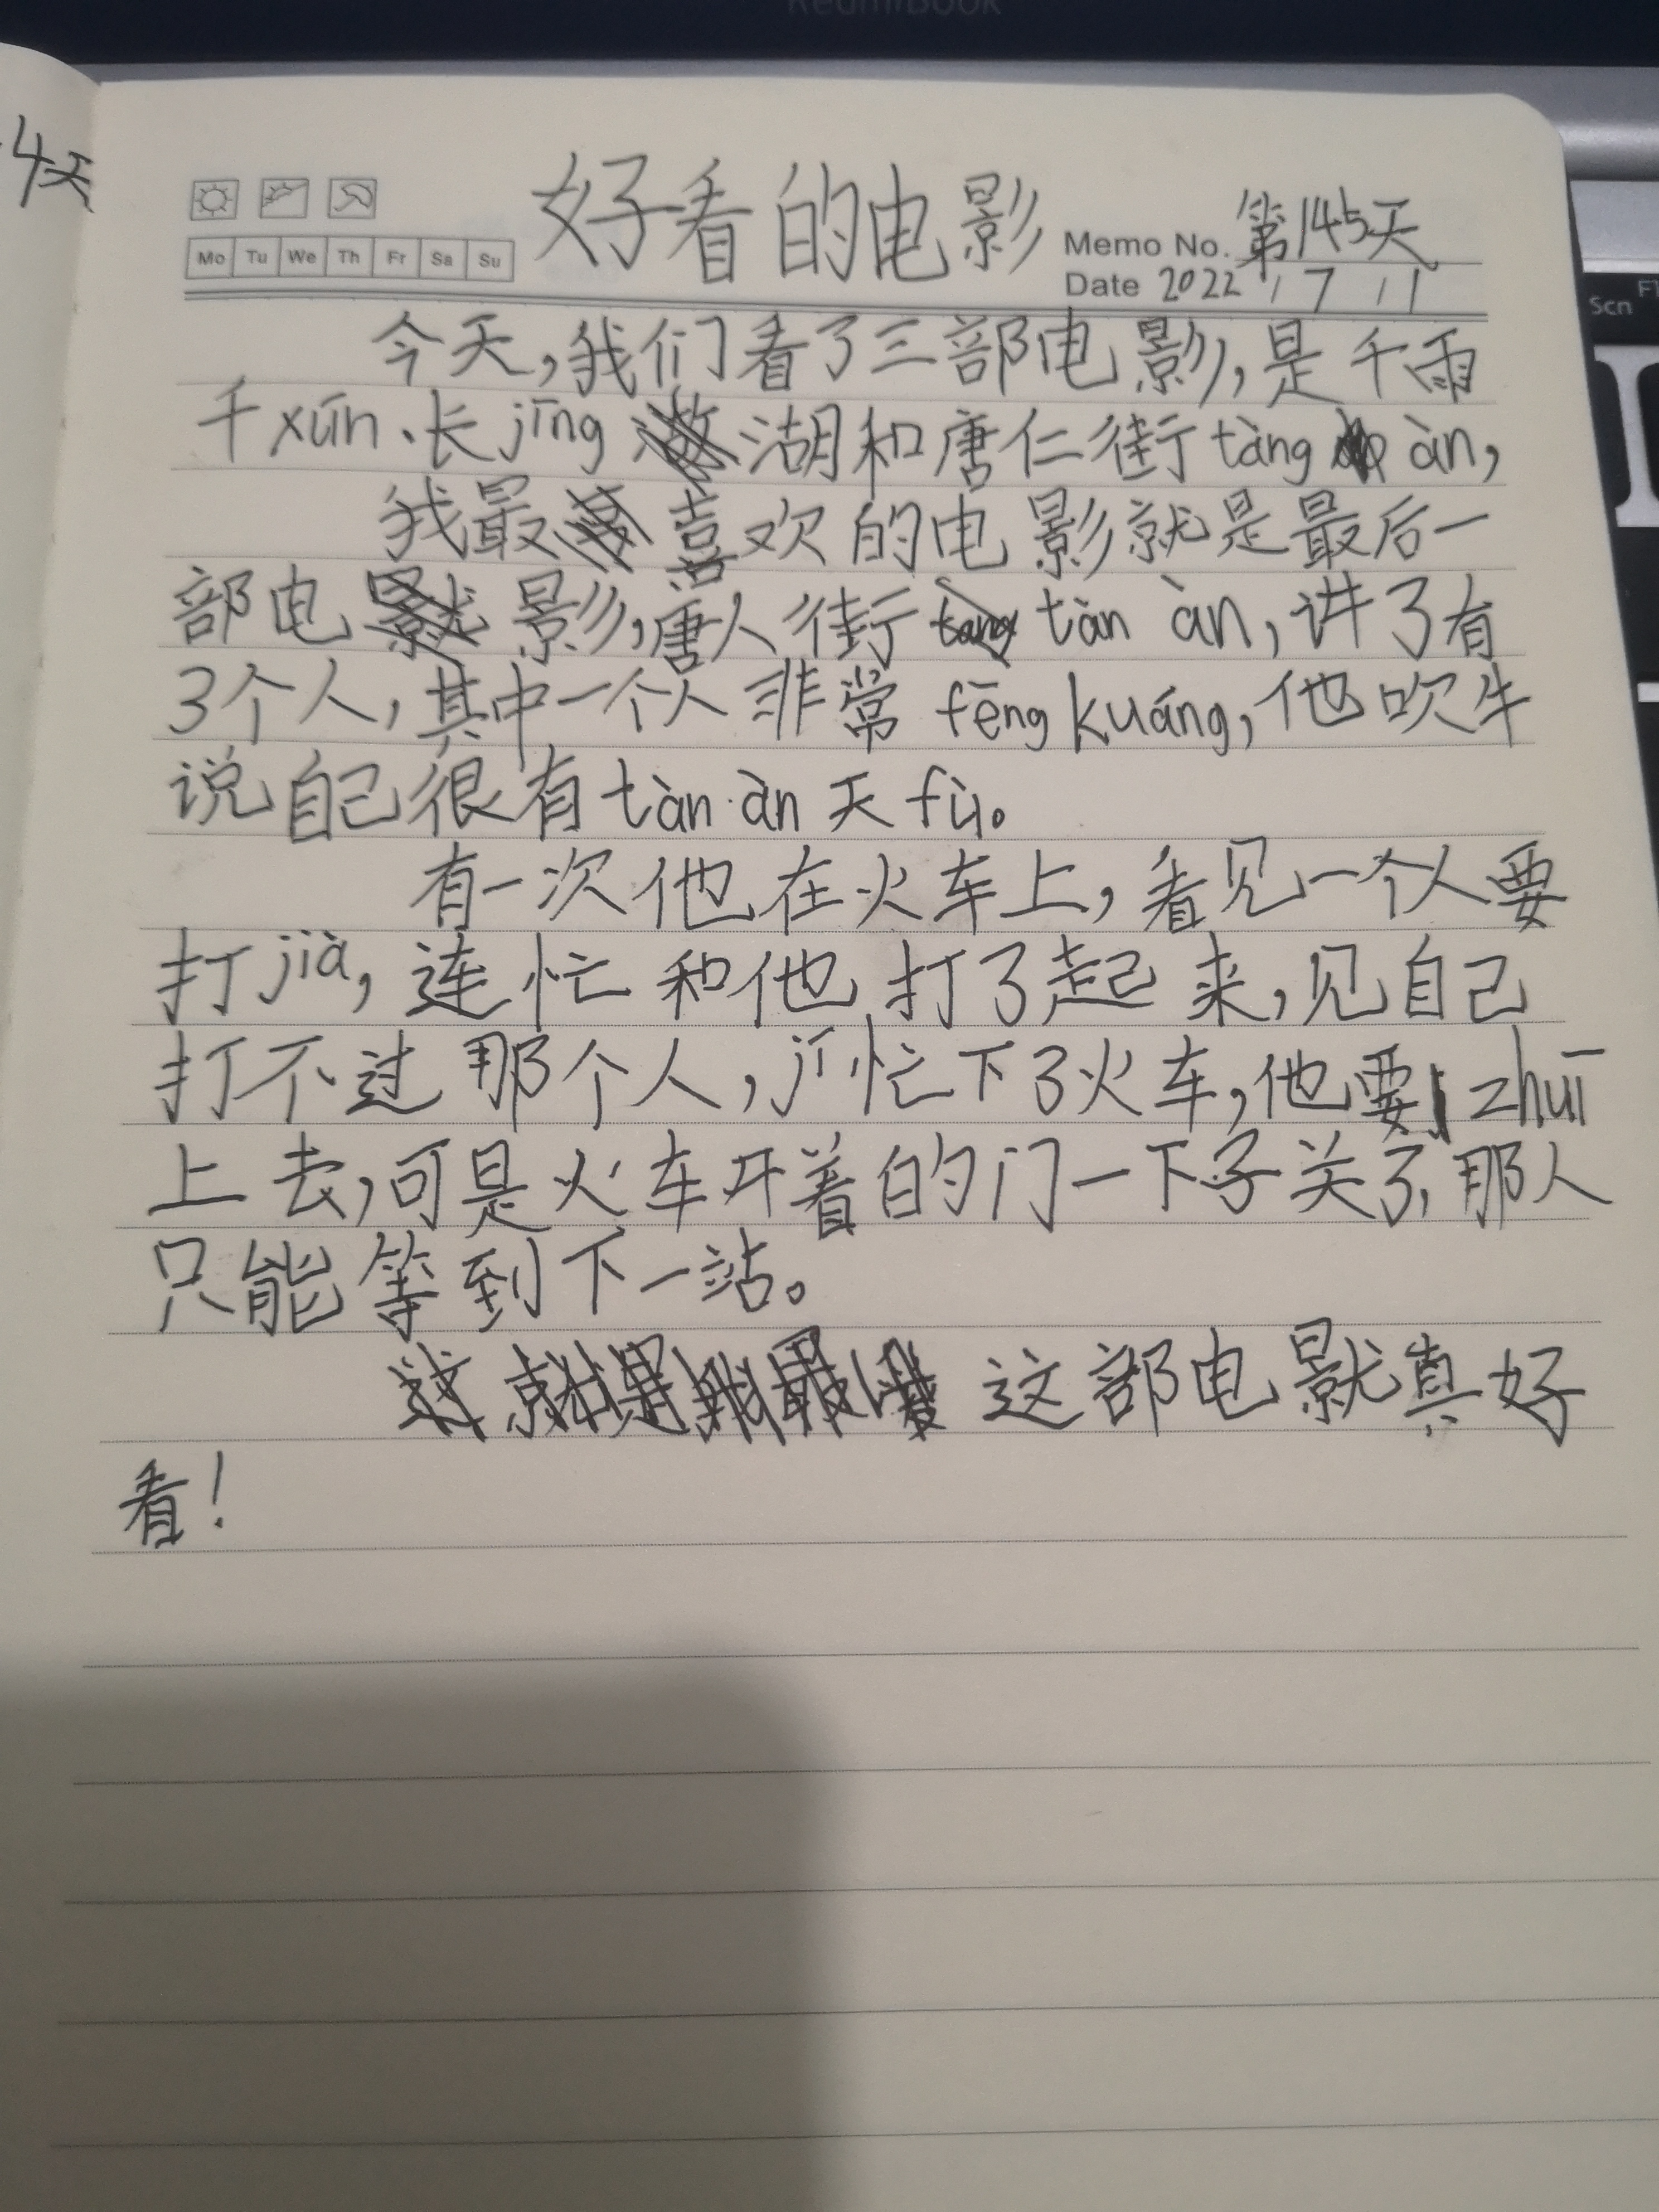 RedmiBook
4天
好看的电影
Memo No. 第145天
Mo Tu We Th Fr Sa Su
Date 2022 / 7 / 1
Scn
今天,我们看了三部电影,是千雨
千xún、长jīng湖和唐仁街tàng àn,
我最喜欢的电影就是最后一
部电影,唐人街tàn àn,讲了有
3个人,其中一个人非常fēng kuáng,他吹牛
说自己很有tàn àn天fù。
有一次他在火车上,看见一个人要
打jià,连忙和他打了起来,见自己
打不过那个人,jí忙下了火车,他要zhuī
上去,可是火车开着的门一下子关了,那人
只能等到下一站。
这部电影真好
看!